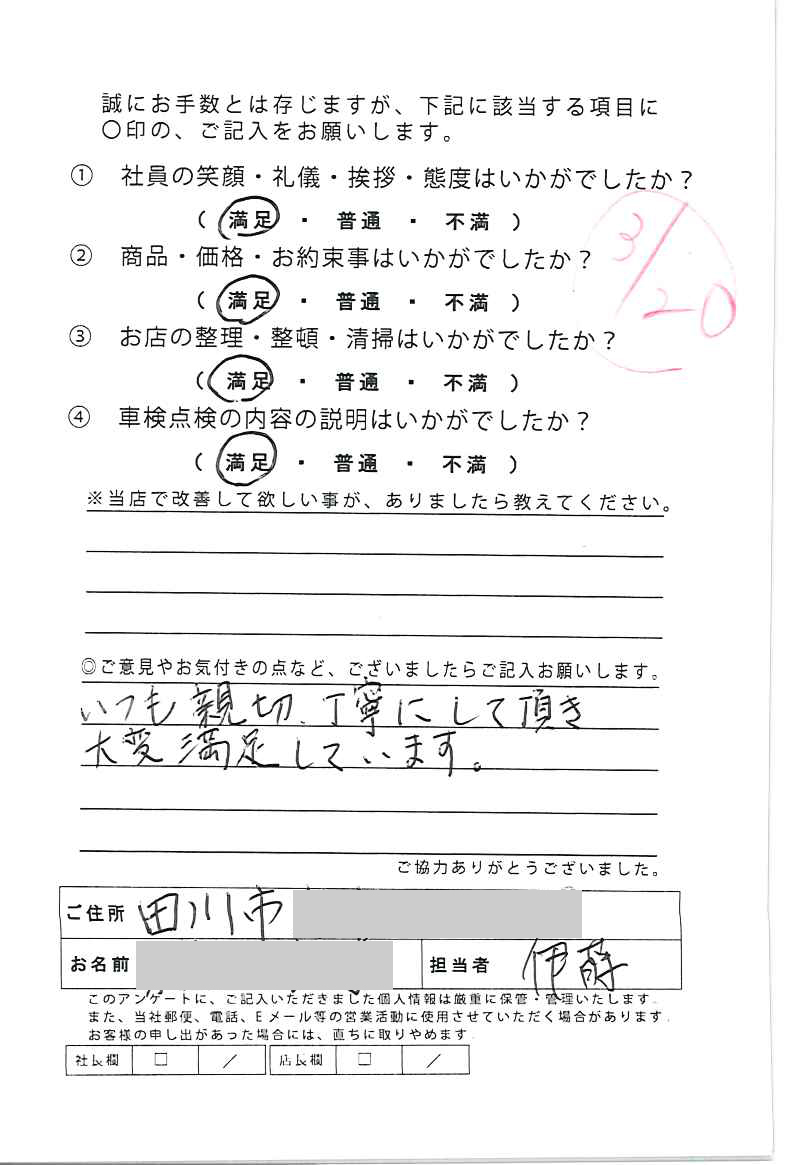 誠にお手数とは存じますが、下記に該当する項目に
〇印の、ご記入をお願いします。
① 社員の笑顔・礼儀・挨拶・態度はいかがでしたか？
( 満足 ・ 普通 ・ 不満 )
3/20
② 商品・価格・お約束事はいかがでしたか？
( 満足 ・ 普通 ・ 不満 )
③ お店の整理・整頓・清掃はいかがでしたか？
( 満足 ・ 普通 ・ 不満 )
④ 車検点検の内容の説明はいかがでしたか？
( 満足 ・ 普通 ・ 不満 )
※当店で改善して欲しい事が、ありましたら教えてください。
◎ご意見やお気付きの点など、ございましたらご記入お願いします。
いつも親切、丁寧にして頂き
大変満足しています。
ご協力ありがとうございました。
ご住所 田川市
お名前 担当者 伊藤
このアンケートに、ご記入いただきました個人情報は厳重に保管・管理いたします。
また、当社郵便、電話、Eメール等の営業活動に使用させていただく場合があります。
お客様の申し出があった場合には、直ちに取りやめます。
社長欄 □ / 店長欄 □ /